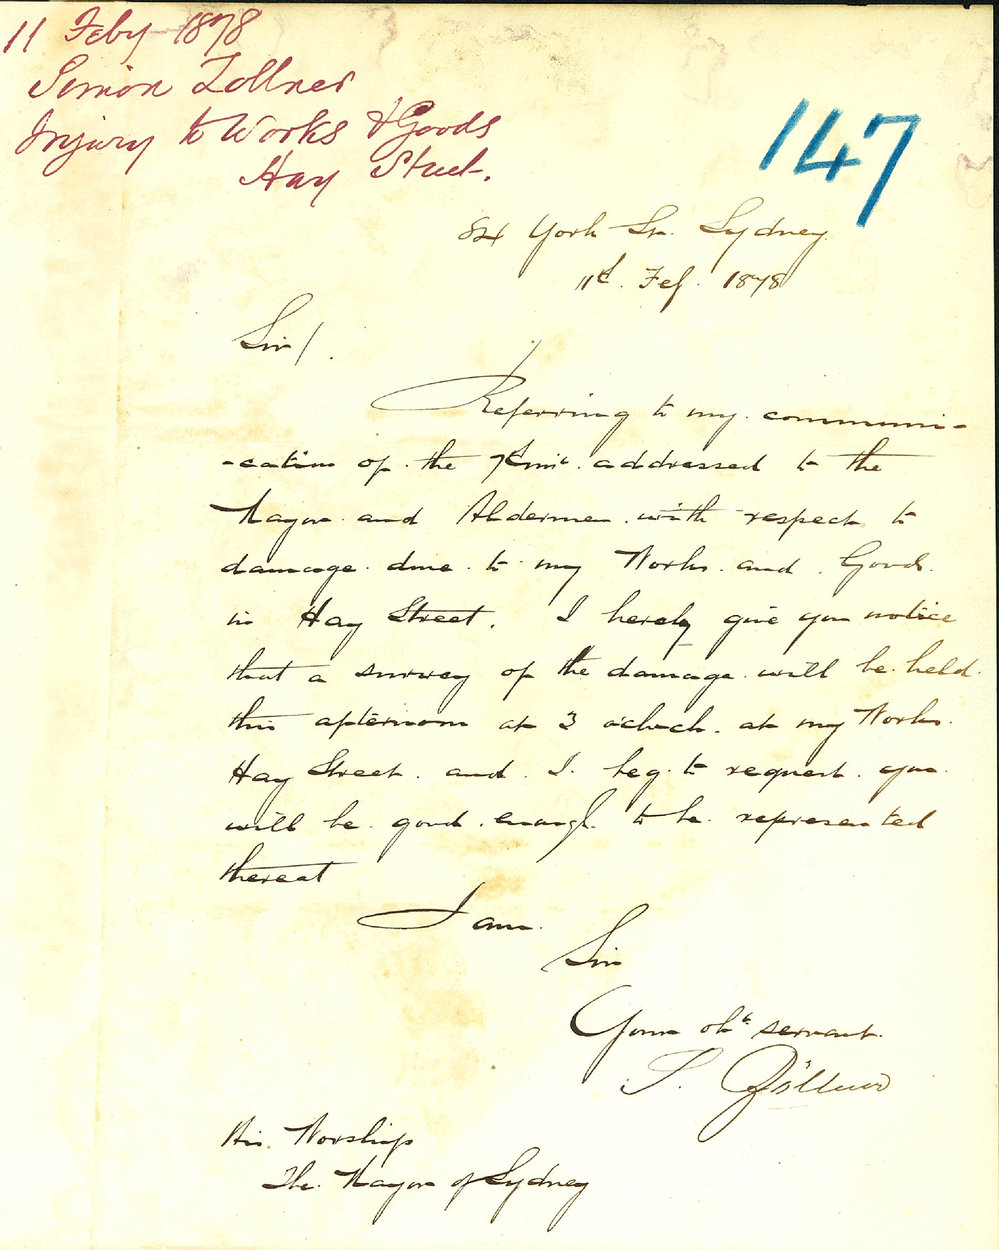 11 Feby 1878
Simon Zollner
Injury to Works & Goods
Hay Street.
147
84 York St. Sydney.
11th. Feb. 1878
Sir/.
Referring to my communi-
-cation of the 7th inst. addressed to the
Mayor and Aldermen with respect to
damage done to my Works and Goods
in Hay Street. I hereby give you notice
that a survey of the damage will be held
this afternoon at 3 o'clock at my Works
Hay Street and I beg to request you
will be good enough to be represented
thereat
I am
Sir
Your obt servant.
S. Zöllner
His Worship
The Mayor of Sydney